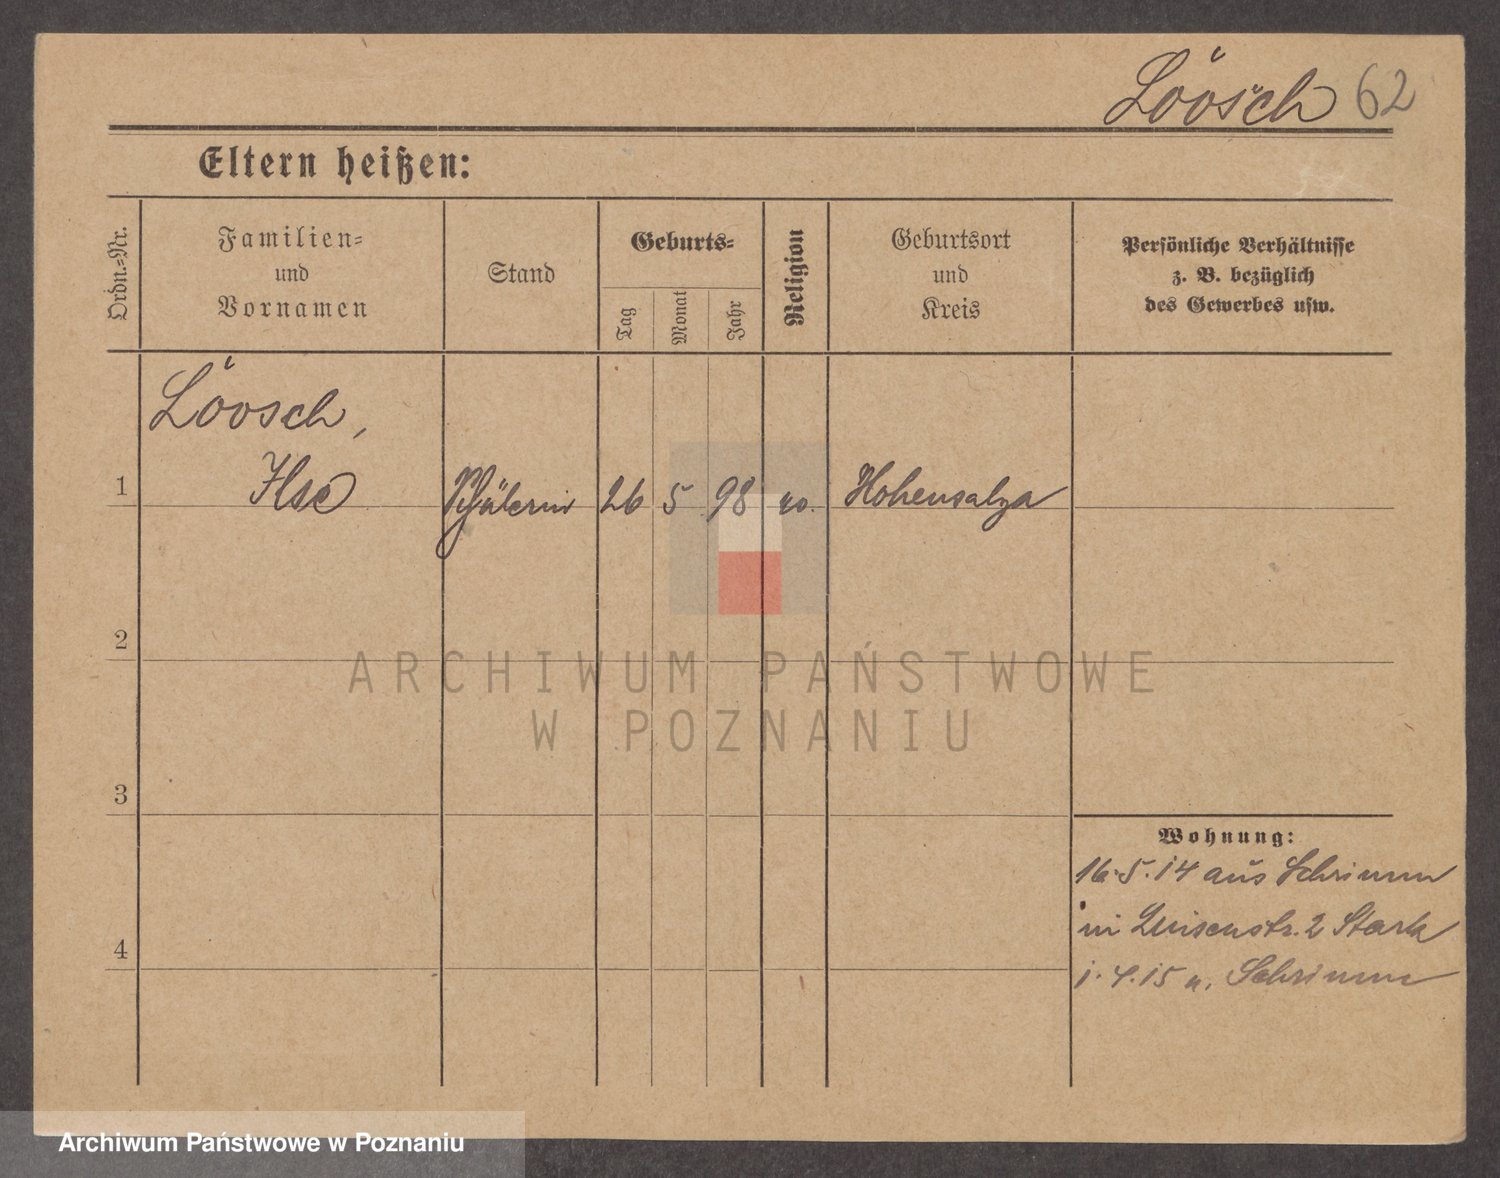 Löosch 62
Eltern heißen:
Ordn.-Nr.
Familien-
und
Vornamen
Stand
Geburts-
Tag
Monat
Jahr
Religion
Geburtsort
und
Kreis
Persönliche Verhältnisse
z. B. bezüglich
des Gewerbes usw.
Löosch,
1 Ilse Schülerin 26 5 98 Hohensalza
2
3
4
Wohnung:
16.5.14 aus Schrimm
in Luisenstr. 2 Stark
1.4.15 n. Schrimm
ARCHIWUM PAŃSTWOWE
W POZNANIU
Archiwum Państwowe w Poznaniu